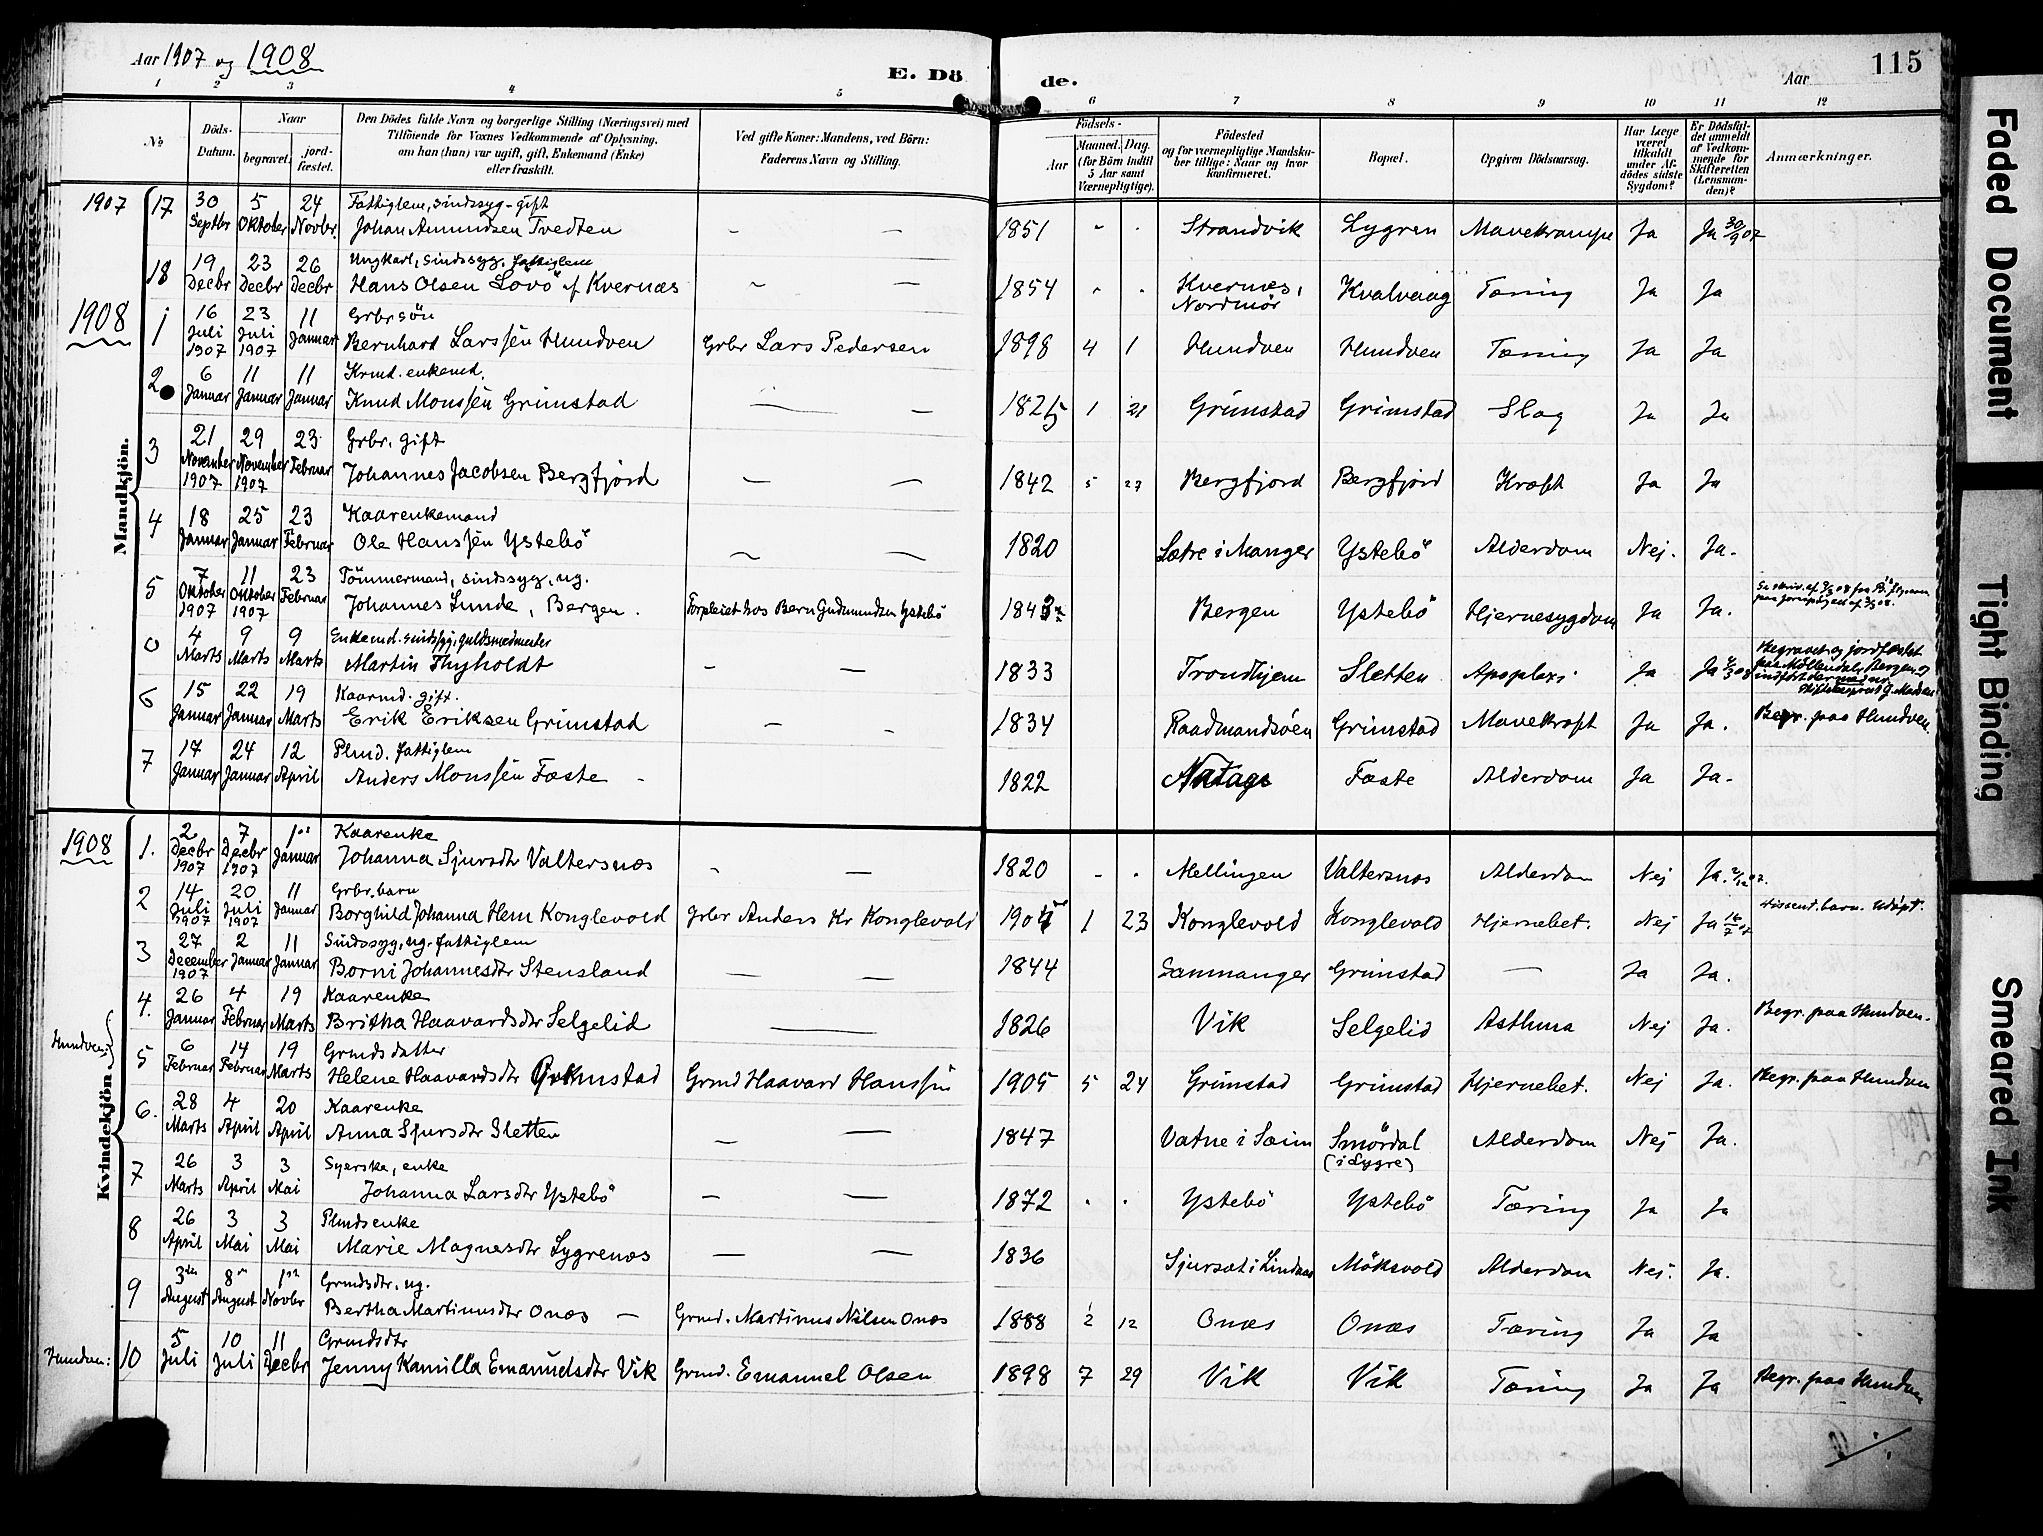 Aar 1907 og 1908
E. Döde.
Aar
115
1 2 3 4 5 6 7 8 9 10 11 12
№
Döds-Datum.
Naar
begravet.
jordfæstet.
Den Dödes fulde Navn og borgerlige Stilling (Næringsvei) med
Tilföiende for Voxnes Vedkommende af Oplysning,
om han (hun) var ugift, gift, Enkemand (Enke)
eller fraskilt.
Ved gifte Koner: Mandens, ved Börn:
Faderens Navn og Stilling.
Födsels-
Aar
Maaned. Dag.
(for Börn indtil 5 Aar samt Værnepligtige).
Födested
og for værnepligtige Mandskaber tillige: Naar og hvor konfirmeret.
Bopæl.
Opgiven Dödsaarsag.
Har Læge været tilkaldt under Afdödes sidste Sygdom?
Er Dödsfaldet anmeldt af Vedkommende for Skifteretten (Lensmanden)?
Anmærkninger.
Mandkjön.
1907 17 30 Septbr 5 Oktober 24 Novbr. Fattiglem, sindssyg - gift
Johan Amundsen Tvedten - — 1851 - - Strandvik Lygren Mavekrampe Ja Ja 30/9 07
18 19 Decbr 23 Decbr 26 Decbr Ungkarl, sindssyg, fattiglem
Hans Olsen Lovö af Kvernæs ~ — 1854 - - Kvernes, Nordmör Kvalvaag Tæring Ja Ja
1908 1 16 Juli 1907 23 Juli 1907 11 Januar Grbr sön
Bernhard Larssen Hundven Grbr Lars Pedersen 1898 4 1 Hundven Hundven Tæring Ja Ja
2 6 Januar 11 Januar 11 Januar Krmd. enkemd.
Knud Monssen Grimstad — — 1825 1 21 Grimstad Grimstad Slag Ja Ja
3 21 November 1907 29 November 1907 23 Februar Grbr. gift
Johannes Jacobsen Bergfjord — — 1842 5 27 Bergfjord Bergfjord Kræft Ja Ja
4 18 Januar 25 Januar 23 Februar Kaarenkemand
Ole Hanssen Ystebö ~ — 1820 Sætre i Manger Ystebö Alderdom Nej. Ja.
5 7 Oktober 1907 11 Oktober 1907 23 Februar Tömmermand, sindssyg, ug.
Johannes Lunde, Bergen. Forpleiet hos Bern Gudmundsen Ystebö 1843 Bergen Ystebö Hjernesygdom Ja Ja.
0 4 Marts 9 Marts 9 Marts Enkemd. sindssyg, guldsmedmester
Martin Thyholdt - — 1833 Trondhjem Sletten Apoplexi Ja Ja
Begravet og jordfæstet paa Möllendal, Bergen og
6 15 Januar 22 Januar 19 Marts Kaarmd. gift.
Erik Eriksen Grimstad — - 1834 Raadmandsöen Grimstad Mavekræft Ja Ja. Begr. paa Hundven.
7 17 Januar 24 Januar 12 April Plmd. fattiglem
Anders Monssen Fæste - 1822 Natags Fæste Alderdom Ja Ja.
Kvindekjön.
1908 1. 2 Decbr 1907 7 Decbr 1907 1 Januar Kaarenke
Johanna Sjursdtr Valtersnæs - — 1820 - - Mellingen Valtersnæs Alderdom Nej Ja. 2/12 07.
2 14 Juli 1907 20 Juli 1907 11 Januar Grbr. barn
Borghild Johanna Hem Konglevold Grbr Anders Kr Konglevold 1 23 Konglevold Konglevold Hjernebet. Nej Ja 16/7 07 Dissent. barn. Udöpt.
3 27 December 1907 2 Januar 11 Januar Sindssyg, ug. fattiglem
Borni Johannesdtr Stensland — — 1844 Sammanger Grimstad — Ja Ja.
4. 26 Januar 4 Februar 19 Marts Kaarenke
Britha Haavardsdtr Selgelid — 1826 Vik Selgelid Asthma Nej Ja. Begr. paa Hundven.
Hundven:
5 6 Februar 14 Februar 19 Marts Grmds datter
Helene Haavardsdtr Grimstad Grmd Haavard Hanssen 1905 5 24 Grimstad Grimstad Hjernebet. Nej Ja. Begr. paa Hundven
6. 28 Marts 4 April 20 April Kaarenke
Anna Sjursdtr Sletten — — 1847 Vatne i Sæim Smördal (i Lygre) Alderdom Nej Ja.
7 26 Marts 3 April 3 Mai Syerske, enke
Johanna Larsdtr Ystebö — — 1872 - - Ystebö Ystebö Tæring Ja Ja
8 26 April 3 Mai 3 Mai Plmdsenke
Marie Magnesdtr Lygrenæs — — 1836 Sjursæt i Lindaas Möksvold Alderdom Nej. Ja.
9 3die August 8de August 1ste Novbr Grmdsdtr, ug.
Bertha Martinusdtr Onæs — Grmd. Martinus Nilsen Onæs 1888 2 12 Onæs Onæs Tæring Ja Ja
Hundven: 10 5 Juli 10 Juli 11 Decbr Grmdsdtr
Jenny Kamilla Emanuelsdtr Vik Grmd. Emanuel Olsen 1898 7 29 Vik Vik Tæring Ja Ja Begr. paa Hundven
Faded Document
Tight Binding
Smeared Ink